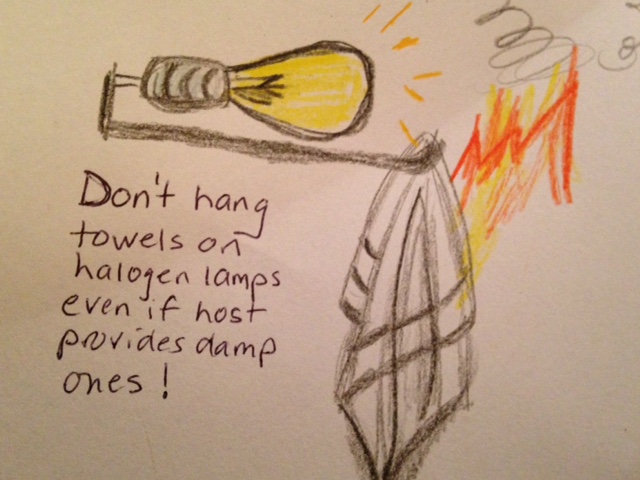 Don't hang
towels on
halogen lamps
even if host
provides damp
ones!